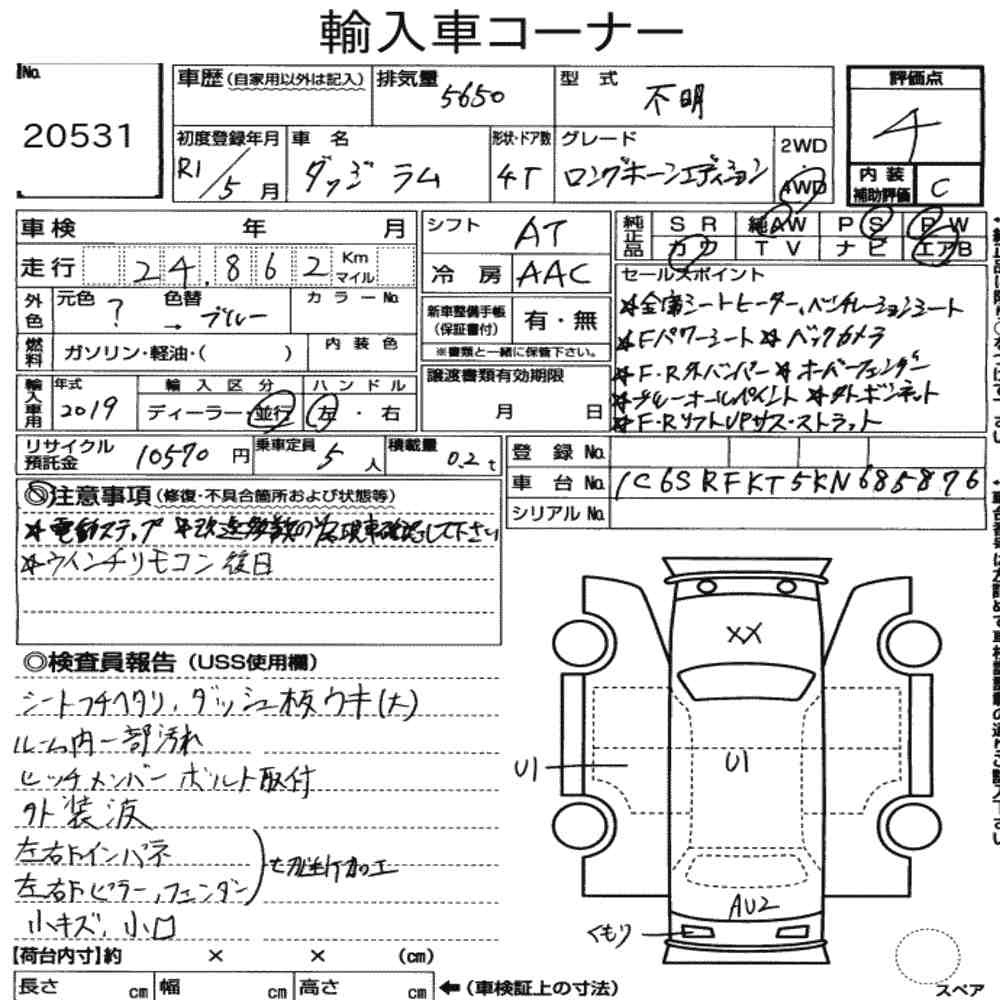 輸入車コーナー
No.
20531
車歴(自家用以外は記入)
排気量 5650
型式 不明
評価点
4
初度登録年月
R1/5月
車名
ダッジ ラム
形状・ドア数
4T
グレード
ロングホーンエディション
2WD
・
4WD
内装
補助評価 C
車検 年 月
シフト AT
純正品
SR 純AW PS PW
カワ TV ナビ エアB
走行 24,862 Km
マイル
冷房 AAC
セールスポイント
☆全席シートヒーター、ベンチレーションシート
☆Fパワーシート ☆バックカメラ
☆F・R外バンパー ☆オーバーフェンダー
☆ブルーオールペイント ☆外ボンネット
☆F・RリフトUPサス・ストラット
外色
元色 ? 色替 → ブルー
カラーNo.
新車整備手帳
(保証書付)
有・無
※書類と一緒に保管下さい。
燃料
ガソリン・軽油・( )
内装色
輸入車用
年式
2019
輸入区分
ディーラー・並行
ハンドル
左・右
譲渡書類有効期限
月 日
リサイクル
預託金 10570円
乗車定員 5人
積載量 0.2t
登録No.
車台No. 1C6SRFKT5KN685876
シリアルNo.
◎注意事項(修復・不具合箇所および状態等)
☆電動ステップ ☆改造多数の為現車確認して下さい
☆ウインチリモコン後日
◎検査員報告(USS使用欄)
シートフチヘタリ、ダッシュ板ウキ(大)
ルーム内一部汚れ
ヒッチメンバーボルト取付
外装波
左右Fインパネ
左右Fピラー、フェンダー
小キズ、小凹
XX
U1
U1
AU2
くもり
【荷台内寸】約 × × (cm)
長さ cm 幅 cm 高さ cm
←(車検証上の寸法)
スペア